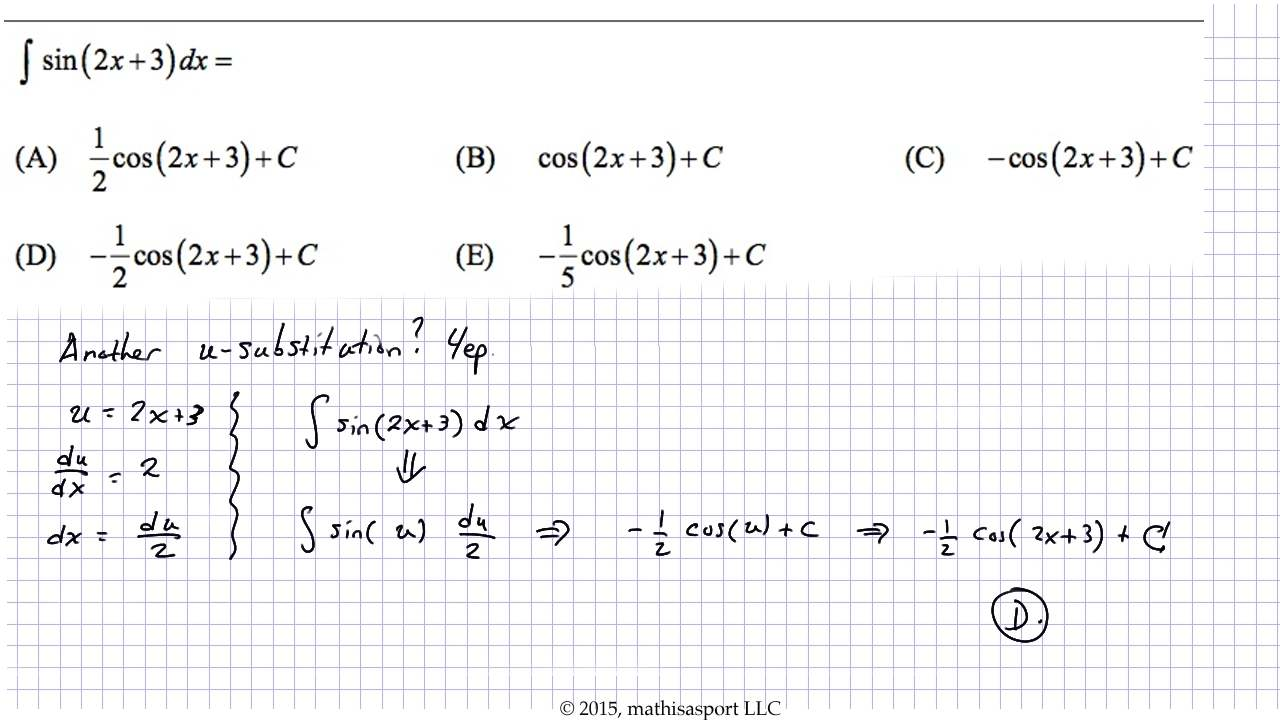 ∫ sin(2x+3)dx =
(A) 1/2 cos(2x+3)+C (B) cos(2x+3)+C (C) -cos(2x+3)+C
(D) -1/2 cos(2x+3)+C (E) -1/5 cos(2x+3)+C
Another u-substitution? Yep.
u = 2x+3 ∫ sin(2x+3) dx
du/dx = 2 ⇓
dx = du/2 ∫ sin( u) du/2 ⇒ -1/2 cos(u)+C ⇒ -1/2 cos( 2x+3) + C
D.
© 2015, mathisasport LLC